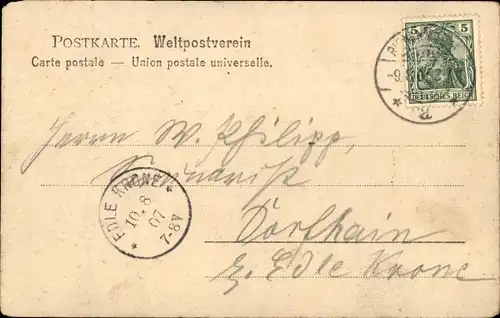 POSTKARTE. Weltpostverein
Carte postale — Union postale universelle.
5 5
DEUTSCHES REICH
a
Herrn W. Philipp,
Dorfhain
b. Edle Krone
EDLE KRONE
10.8
07
7-8V